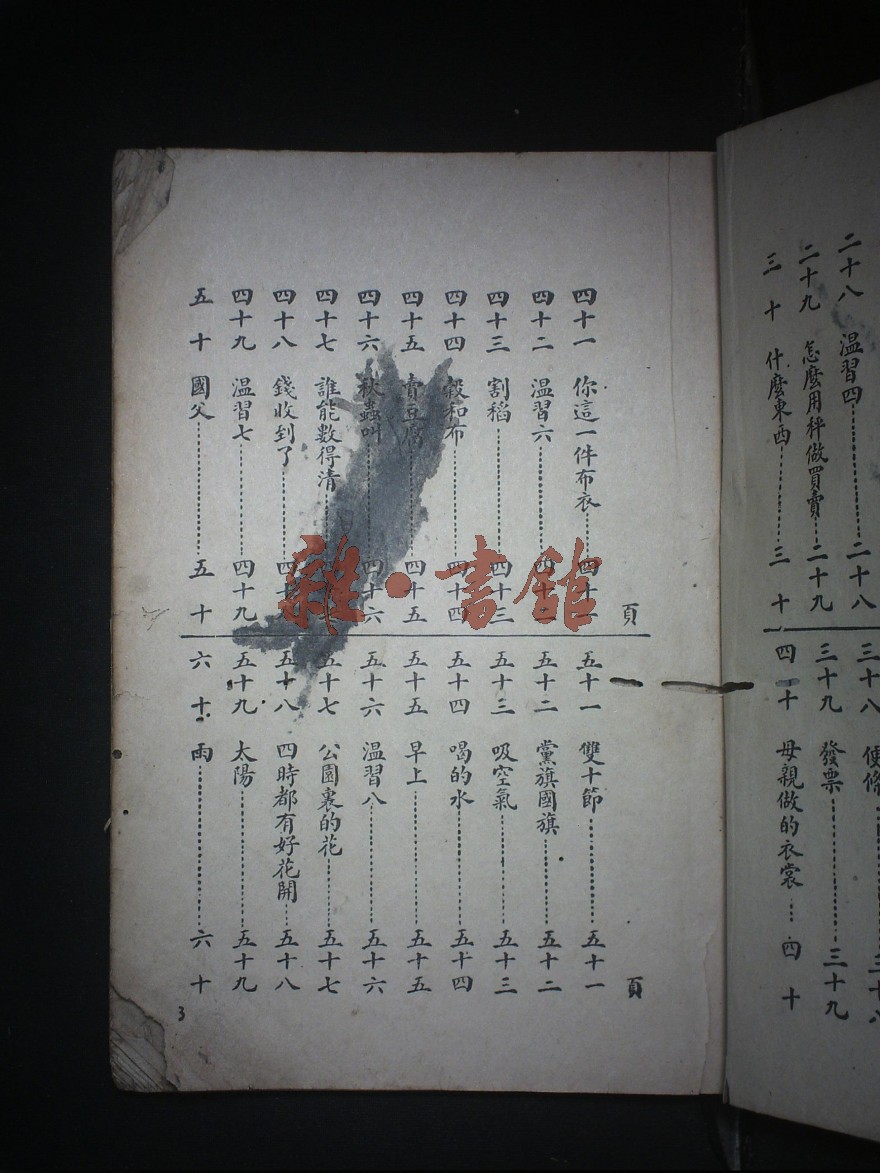 二十八 温習四……二十八
二十九 怎麼用秤做買賣……二十九
三十 什麼東西……三十
三十八 使條……三十八
三十九 發票……三十九
四十 母親做的衣裳……四十
頁
四十一 你這一件布衣……四十一
四十二 温習六……四十二
四十三 割稻……四十三
四十四 穀和布……四十四
四十五 賣豆腐……四十五
四十六 秋蟲叫……四十六
四十七 誰能數得清……
四十八 錢收到了……四十八
四十九 温習七……四十九
五十 國父……五十
頁
五十一 雙十節……五十一
五十二 黨旗國旗……五十二
五十三 吸空氣……五十三
五十四 喝的水……五十四
五十五 早上……五十五
五十六 温習八……五十六
五十七 公園裏的花……五十七
五十八 四時都有好花開……五十八
五十九 太陽……五十九
六十 雨……六十
3
雜·書館